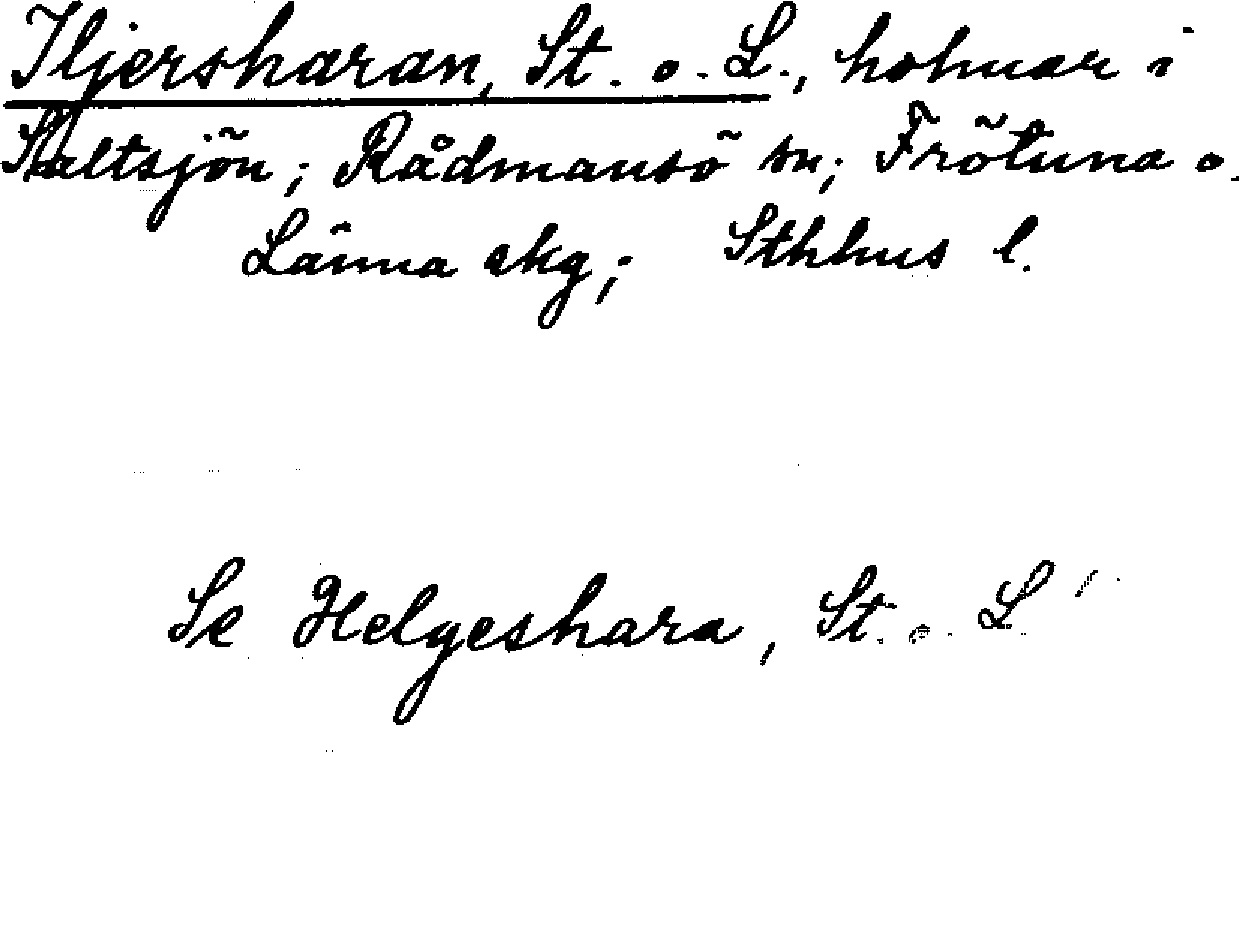 Iljersharan, St. o. L., holmar i
Saltsjön; Rådmansö sn; Frötuna o.
Länna skg; Sthlms l.
Se Helgeshara, St. o. L.